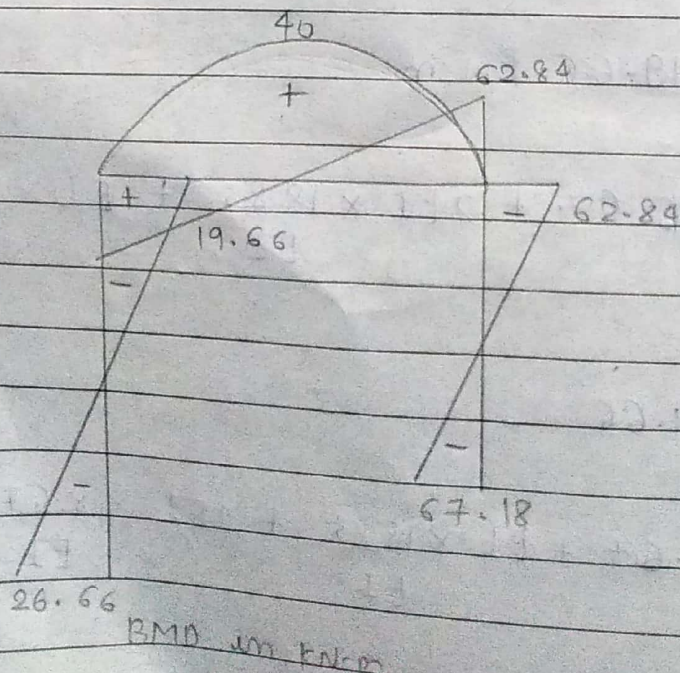 40
62.84
+
+
- 62.84
19.66
-
-
-
67.18
26.66
BMD in KN-m